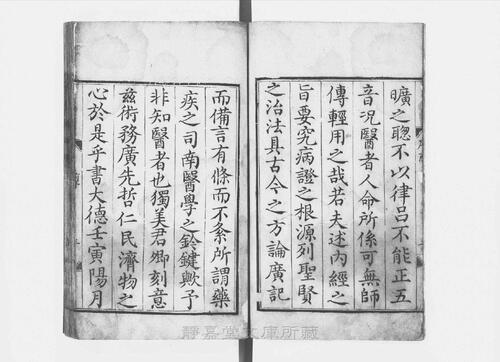 曠之聦不以律呂不能正五
音况醫者人命所係可無師
傳輕用之哉若夫述内經之
旨要究病證之根源列聖賢
之治法具古今之方論廣記
而備言有條而不紊所謂藥
疾之司南醫學之鈐鍵歟予
非知醫者也獨美君卿刻意
兹術務廣先哲仁民濟物之
心於是乎書大德壬寅陽月
靜嘉堂文庫所藏